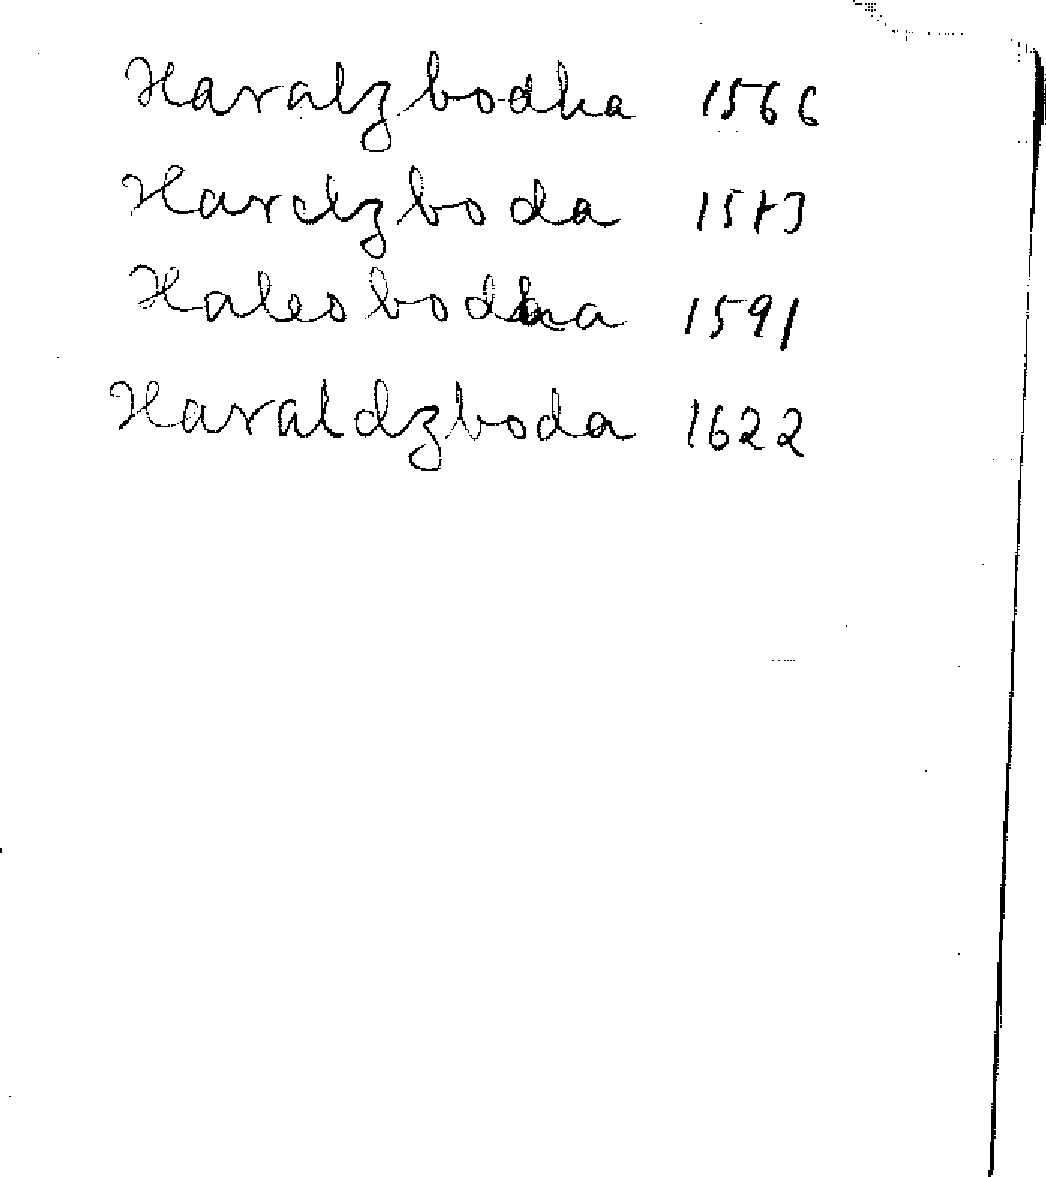 Haralzbodha 1566
Haralzboda 1573
Halesbodha 1591
Haraldzboda 1622